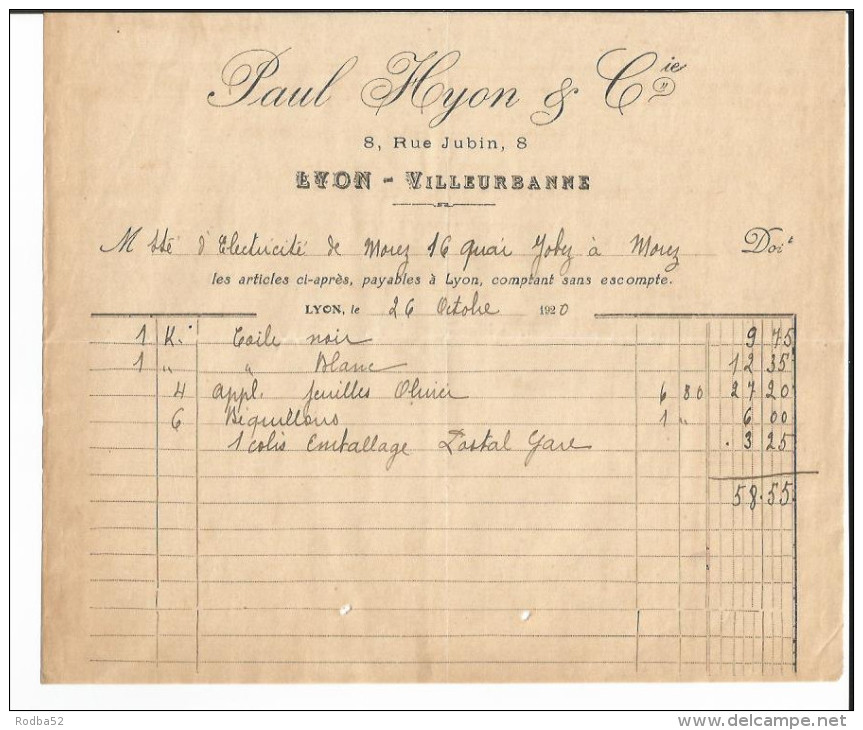 Paul Hyon & Cie
8, Rue Jubin, 8
LYON - VILLEURBANNE
M Sté d'Electricité de Morez 16 quai Jobez à Morez Doit
les articles ci-après, payables à Lyon, comptant sans escompte.
LYON, le 26 Octobre 1920
1 K. Toile noir 9 75
1 " " Blanc 12 35
4 appl. feuilles Olivier 6 80 27 20
6 Aiguillons 1 " 6 00
1 colis Emballage Postal Gare 3 25
58.55
Rodba52
www.delcampe.net